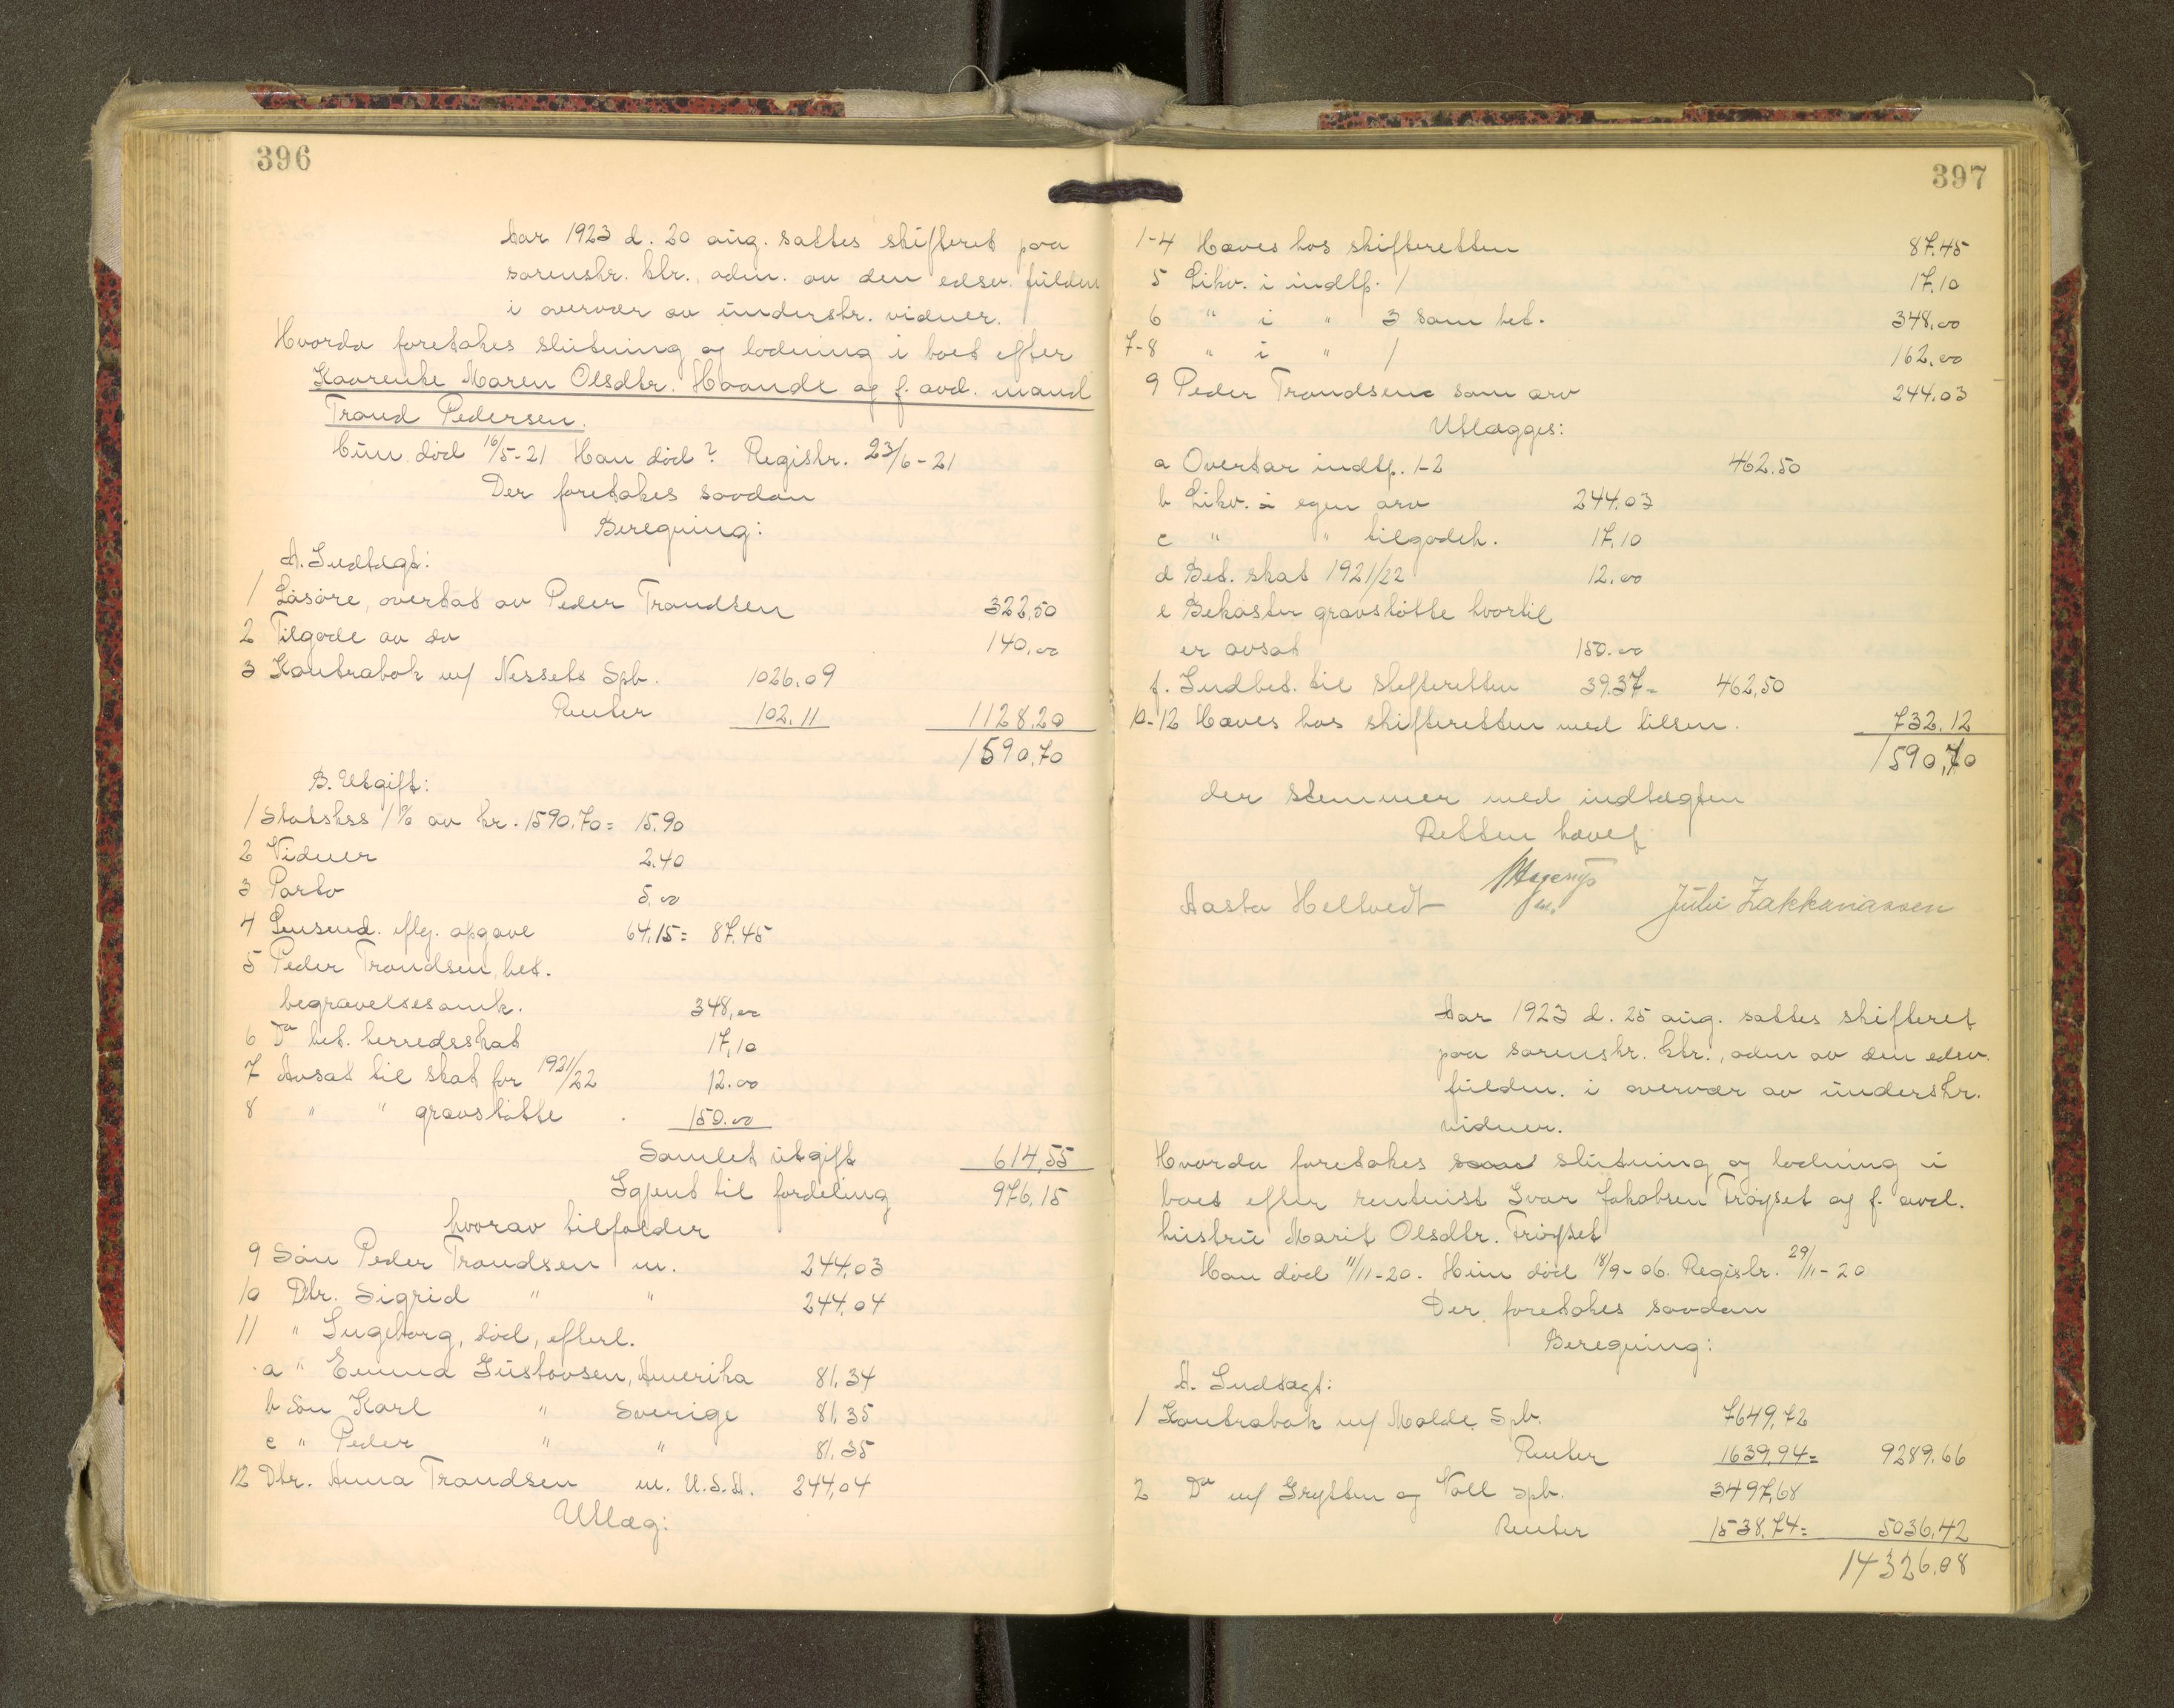 396
Aar 1923 d. 20 aug. sattes skifteret paa
sorenskr. ktr., adm. av den edsv. fuldm
i overvær av underskr. vidner.
Hvorda foretokes slutning og lodning i boet efter
Kaarenke Maren Olsdtr. Haande og f. avd. mand
Trond Pedersen.
Hun död 16/5-21 Han död? Registr. 23/6-21
Der foretokes saadan
Beregning:
A. Indtægt:
1 Lösöre, overtat av Peder Trondsen 322,50
2 Tilgode av do 140,00
3 Kontrabok m/ Nessets Spb. 1026.09
Renter 102.11 1128.20
1590,70
B. Utgift:
1 Statskss 1% av kr. 1590,70 = 15.90
2 Vidner 2.40
3 Porto 5.00
4 Inserd. eflg. opgave 64,15 = 87.45
5 Peder Trondsen, bet.
begravelsesomk. 348,00
6 Do bet. herredsskat 17,10
7 Avsat til skat for 1921/22 12.00
8 " " gravstötte . 150.00
Samlet utgift 614,55
Igjent til fordeling 976,15
hvorav tilfalder
9 Sön Peder Trondsen m. 244,03
10 Dtr. Sigrid " " 244,04
11 " Ingeborg, död, efterl.
a " Emma Gustavsen, Amerika 81,34
b Sön Karl " Sverige 81,35
c " Peder " " 81,35
12 Dtr. Anna Trondsen m. U.S.A. 244,04
Utlæg:
397
1-4 Hæves hos skifteretten 87.45
5 Likv. i indtp. 1 17,10
6 " i " 3 som bet. 348,00
7-8 " i " 1 162,00
9 Peder Trondsen som arv 244.03
Utlægges:
a Overtar indtp. 1-2 462.50
b Likv. i egen arv 244.03
c " " tilgodeh. 17,10
d Bet. skat 1921/22 12.00
e Bekoster gravstötte hvortil
er avsat 150.00
f. Indbet. til skifteretten 39.37 = 462,50
10-12 Hæves hos skifteretten med tilsm. 732.12
1590,70
der stemmer med indtægten
Retten hævet
Aasta Heltvedt Julie Zakkariassen
Aar 1923 d. 25 aug. sattes skifteret
paa sorenskr. ktr., adm av den edsv.
fuldm. i overvær av underskr.
vidner.
Hvorda foretokes slutning og lodning i
boet efter rentenist Ivar Jakobsen Tröjset og f. avd.
hustru Marit Olsdtr. Tröjset
Han död 11/11-20. Hun död 18/9-06. Registr. 29/11-20
Der foretokes saadan
Beregning:
A. Indtægt:
1 Kontrabok m/ Molde Spb. 7649,72
Renter 1639,94 = 9289.66
2 Do m/ Grytten og Voll Spb. 3497,68
Renter 1538,74 = 5036,42
14326,08